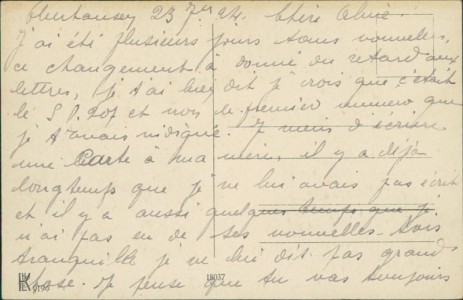 Oberhausen 23 7re 24. Chère Aimée.
J'ai été plusieurs jours sans nouvelles,
ce changement a donné du retard aux
lettres, je t'ai bien dit je crois que c'était
le S.P. 207 et non le premier numero que
je t'avais indiqué. Je viens d'écrire
une Carte à ma mère, il y a déjà
longtemps que je ne lui avais pas écrit
et il y a aussi quelques temps que je
n'ai pas eu de ses nouvelles. Sois
tranquille je ne lui dit pas grand
chose. Je pense que tu vas toujours
18037